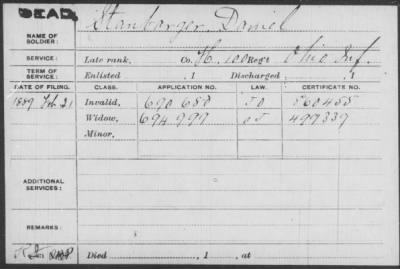 DEAD.
Stanbarger, Daniel
NAME OF
SOLDIER:
SERVICE: Late rank, Co. H, 100 Reg't Ohio Inf.
TERM OF
SERVICE: Enlisted , 1 Discharged , 1
DATE OF FILING. CLASS. APPLICATION NO. LAW. CERTIFICATE NO.
1889 Feb. 21 Invalid, 690 688
Widow, 694 999 499339
Minor,
ADDITIONAL
SERVICES:
REMARKS:
Died , 1 , at